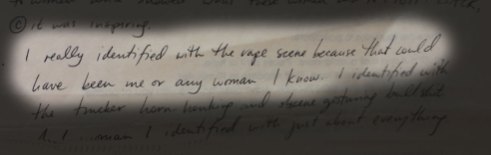 © it was inspiring.
I really identified with the rape scene because that could
have been me or any woman I know. I identified with
the trucker horn honking and obscene gesturing bullshit
I identified with just about everything